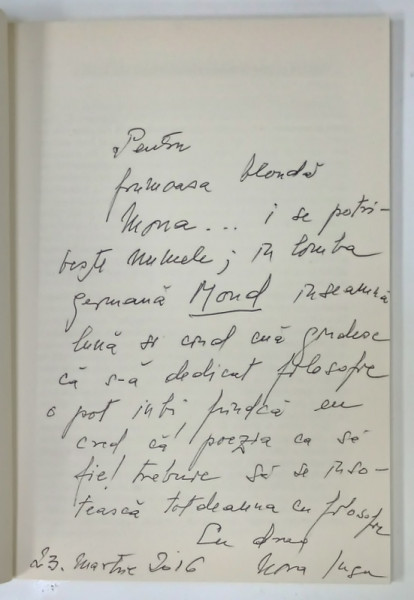 Pentru
frumoasa blondă
Mona... i se potri-
vește numele; în limba
germană Mond înseamnă
lună și când mă gândesc
că s-a dedicat filosofiei
o pot iubi, fiindcă eu
cred că poezia ca să
fie! trebuie să se înso-
țească totdeauna cu filosofie
Cu drag
23. martie 2016 Nora Iuga